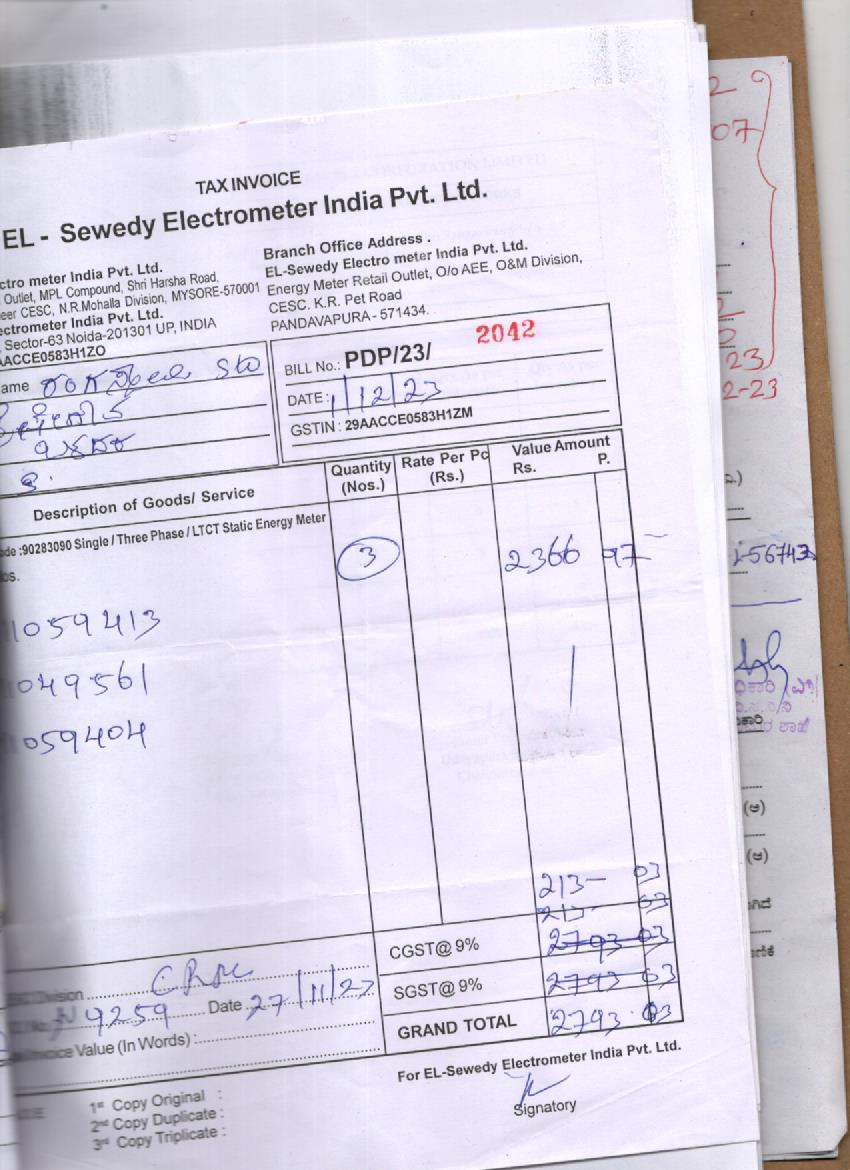 TAX INVOICE
EL - Sewedy Electrometer India Pvt. Ltd.
ctro meter India Pvt. Ltd.
Outlet, MPL Compound, Shri Harsha Road,
eer CESC, N.R.Mohalla Division, MYSORE-570001
ectrometer India Pvt. Ltd.
, Sector-63 Noida-201301 UP, INDIA
AACCE0583H1ZO
Branch Office Address .
EL-Sewedy Electro meter India Pvt. Ltd.
Energy Meter Retail Outlet, O/o AEE, O&M Division,
CESC. K.R. Pet Road
PANDAVAPURA - 571434.
ame
BILL No.: PDP/23/ 2042
DATE : 1/12/23
GSTIN : 29AACCE0583H1ZM
Description of Goods/ Service
Quantity (Nos.)
Rate Per Pc (Rs.)
Value Amount
Rs. P.
ode :90283090 Single / Three Phase / LTCT Static Energy Meter
3 2366 97
os.
1059413
1049561
1059404
213 03
213 03
CGST@ 9% 2793 03
SGST@ 9% 2793 03
GRAND TOTAL 2793 03
Division
9259 Date 27/11/23
Invoice Value (In Words) :
For EL-Sewedy Electrometer India Pvt. Ltd.
Signatory
1st Copy Original :
2nd Copy Duplicate :
3rd Copy Triplicate :
07
23
2-23
56743
(ಅ)
(ಅ)